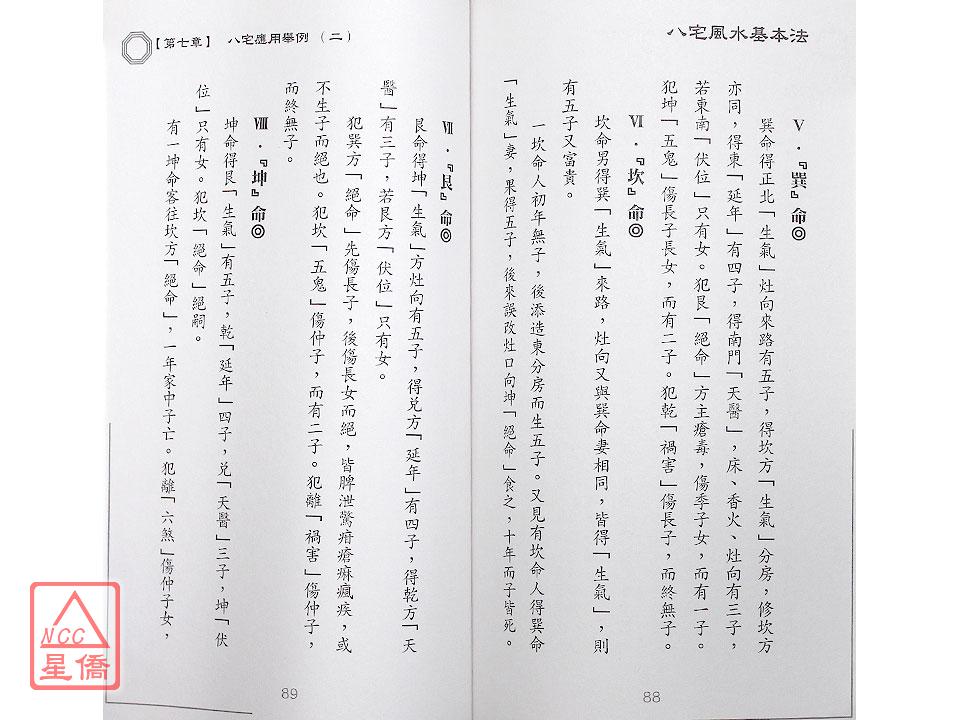 八宅風水基本法
V．『巽』命◎
巽命得正北「生氣」灶向來路有五子，得坎方「生氣」分房，修坎方
亦同，得東「延年」有四子，得南門「天醫」，床、香火、灶向有三子，
若東南「伏位」只有女。犯艮「絕命」方主瘡毒，傷季子女，而有一子。
犯坤「五鬼」傷長子長女，而有二子。犯乾「禍害」傷長子，而終無子。
VI．『坎』命◎
坎命男得巽「生氣」來路，灶向又與巽命妻相同，皆得「生氣」，則
有五子又富貴。
一坎命人初年無子，後添造東分房而生五子。又見有坎命人得巽命
「生氣」妻，果得五子，後來誤改灶口向坤「絕命」食之，十年而子皆死。
88
【第七章】 八宅應用舉例（二）
VII．『艮』命◎
艮命得坤「生氣」方灶向有五子，得兌方「延年」有四子，得乾方「天
醫」有三子，若艮方「伏位」只有女。
犯巽方「絕命」先傷長子，後傷長女而絕，皆脾泄驚疳瘡痳瘋疾，或
不生子而絕也。犯坎「五鬼」傷仲子，而有二子。犯離「禍害」傷仲子，
而終無子。
VIII．『坤』命◎
坤命得艮「生氣」有五子，乾「延年」四子，兌「天醫」三子，坤「伏
位」只有女。犯坎「絕命」絕嗣。
有一坤命客往坎方「絕命」，一年家中子亡。犯離「六煞」傷仲子女，
89
NCC
星僑